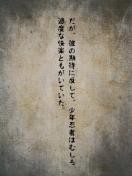 だが、彼の期待に反して、少年忍者はむしろ
過度な快楽ともがいていた。